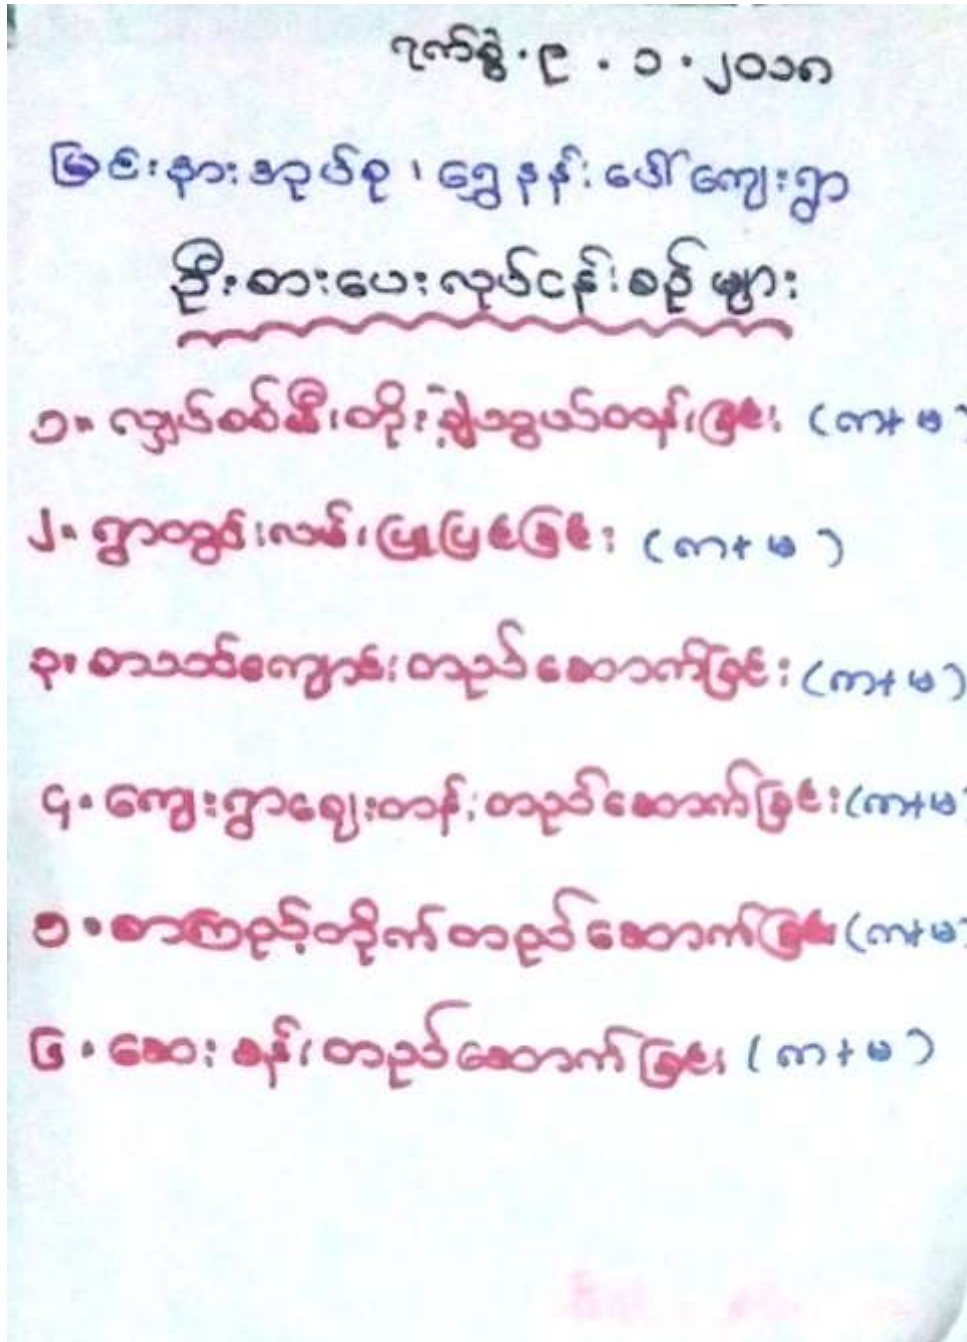 ရက်စွဲ . ၉ . ၁ . ၂၀၁၈
မြင်းနားအုပ်စု ၊ ရွှေနန်းပေါ်ကျေးရွာ
ဦးစားပေးလုပ်ငန်းစဉ်များ
၁။ လျှပ်စစ်မီးတိုးချဲ့သွယ်တန်းခြင်း (က+မ
၂။ ရွာတွင်းလမ်းပြုပြင်ခြင်း (က+မ)
၃။ စာသင်ကျောင်းတည်ဆောက်ခြင်း (က+မ)
၄။ ကျေးရွာဈေးတန်းတည်ဆောက်ခြင်း (က+မ
၅။ စာကြည့်တိုက်တည်ဆောက်ခြင်း (က+မ)
၆။ ဆေးခန်းတည်ဆောက်ခြင်း (က+မ)